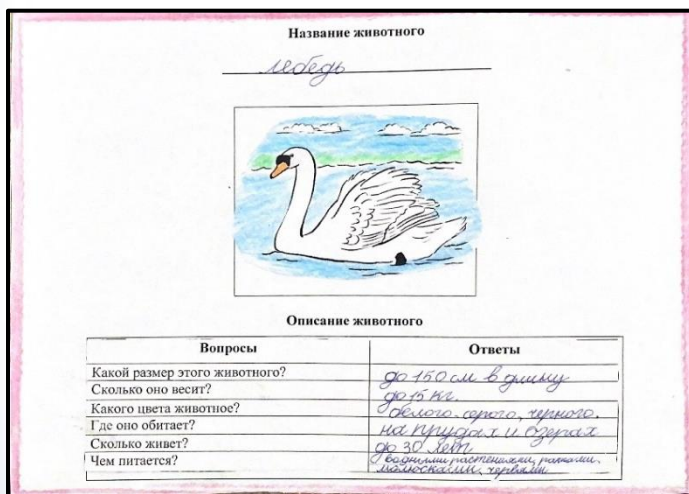 Название животного
лебедь
Описание животного
Вопросы Ответы
Какой размер этого животного? до 150 см в длину
Сколько оно весит? до 15 кг.
Какого цвета животное? белого, серого, черного.
Где оно обитает? на прудах и озерах
Сколько живет? до 30 лет
Чем питается? водными растениями, рачками,
малюсками, червями